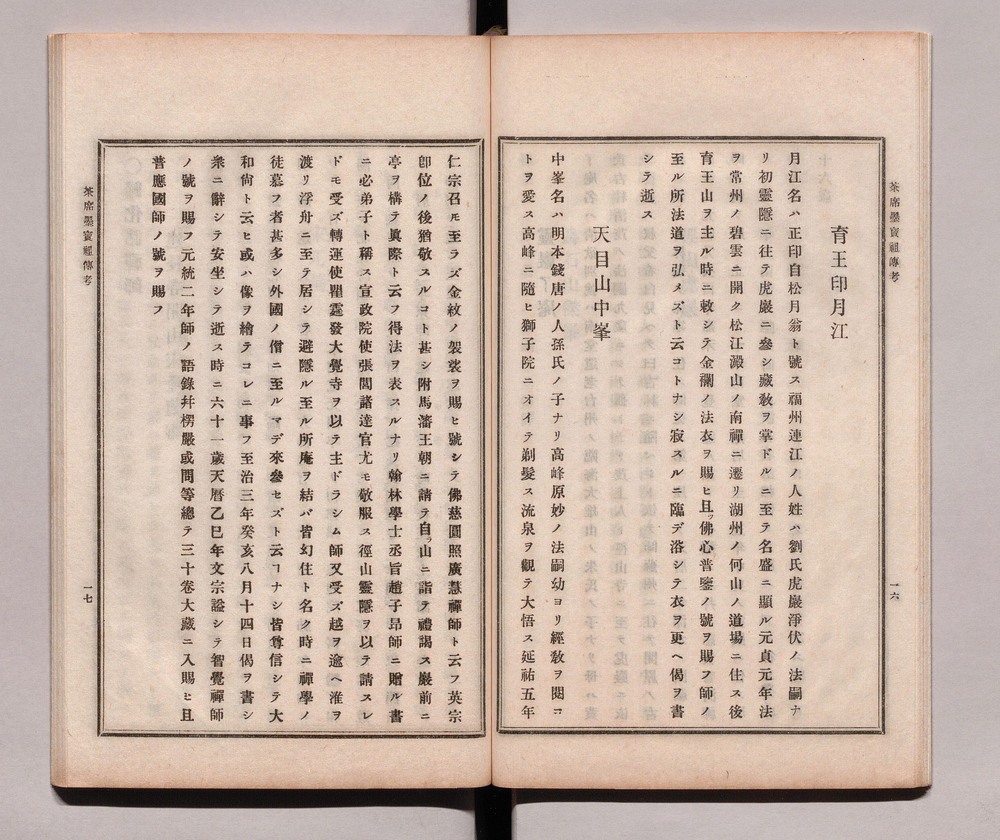 茶席墨寳祖傳考
一六
育王印月江
月江名ハ正印自松月翁ト號ス福州連江ノ人姓ハ劉氏虎巖淨伏ノ法嗣ナ
リ初靈隱ニ往テ虎巖ニ參シ藏敎ヲ掌ドルニ至テ名盛ニ顯ル元貞元年法
ヲ常州ノ碧雲ニ開ク松江澱山ノ南禪ニ遷リ湖州ノ何山ノ道場ニ住ス後
育王山ヲ主ル時ニ敕シテ金襴ノ法衣ヲ賜ヒ且ッ佛心普鑒ノ號ヲ賜フ師ノ
至ル所法道ヲ弘メズト云コトナシ寂スルニ臨デ浴シテ衣ヲ更ヘ偈ヲ書
シテ逝ス
天目山中峯
中峯名ハ明本錢唐ノ人孫氏ノ子ナリ高峰原妙ノ法嗣幼ヨリ經敎ヲ閱コ
トヲ愛ス高峰ニ隨ヒ獅子院ニオイテ剃髮ス流泉ヲ觀テ大悟ス延祐五年
仁宗召モ至ラズ金紋ノ袈裟ヲ賜ヒ號シテ佛慈圓照廣慧禪師ト云フ英宗
卽位ノ後猶敬スルコト甚シ附馬瀋王朝ニ請テ自ッ山ニ詣テ禮謁ス巖前ニ
亭ヲ構テ眞際ト云フ得法ヲ表スルナリ翰林學士丞旨趙子昂師ニ贈ル書
ニ必弟子ト稱ス宣政院使張閭諸達官尤モ敬服ス徑山靈隱ヲ以テ請スレ
ドモ受ズ轉運使瞿霆發大覺寺ヲ以テ主ドラシム師又受ズ越ヲ逾ヘ淮ヲ
渡リ浮舟ニ至テ居シテ避隱ル至ル所庵ヲ結バ皆幻住ト名ク時ニ禪學ノ
徒慕フ者甚多シ外國ノ僧ニ至ルマデ來參セズト云ヿナシ皆尊信シテ大
和尙ト云ヒ或ハ像ヲ繪テコレニ事フ至治三年癸亥八月十四日偈ヲ書シ
衆ニ辭シテ安坐シテ逝ス時ニ六十一歲天曆乙巳年文宗諡シテ智覺禪師
ノ號ヲ賜フ元統二年師ノ語錄幷楞嚴或問等總テ三十卷大藏ニ入賜ヒ且
普應國師ノ號ヲ賜フ
茶席墨寳祖傳考
一七